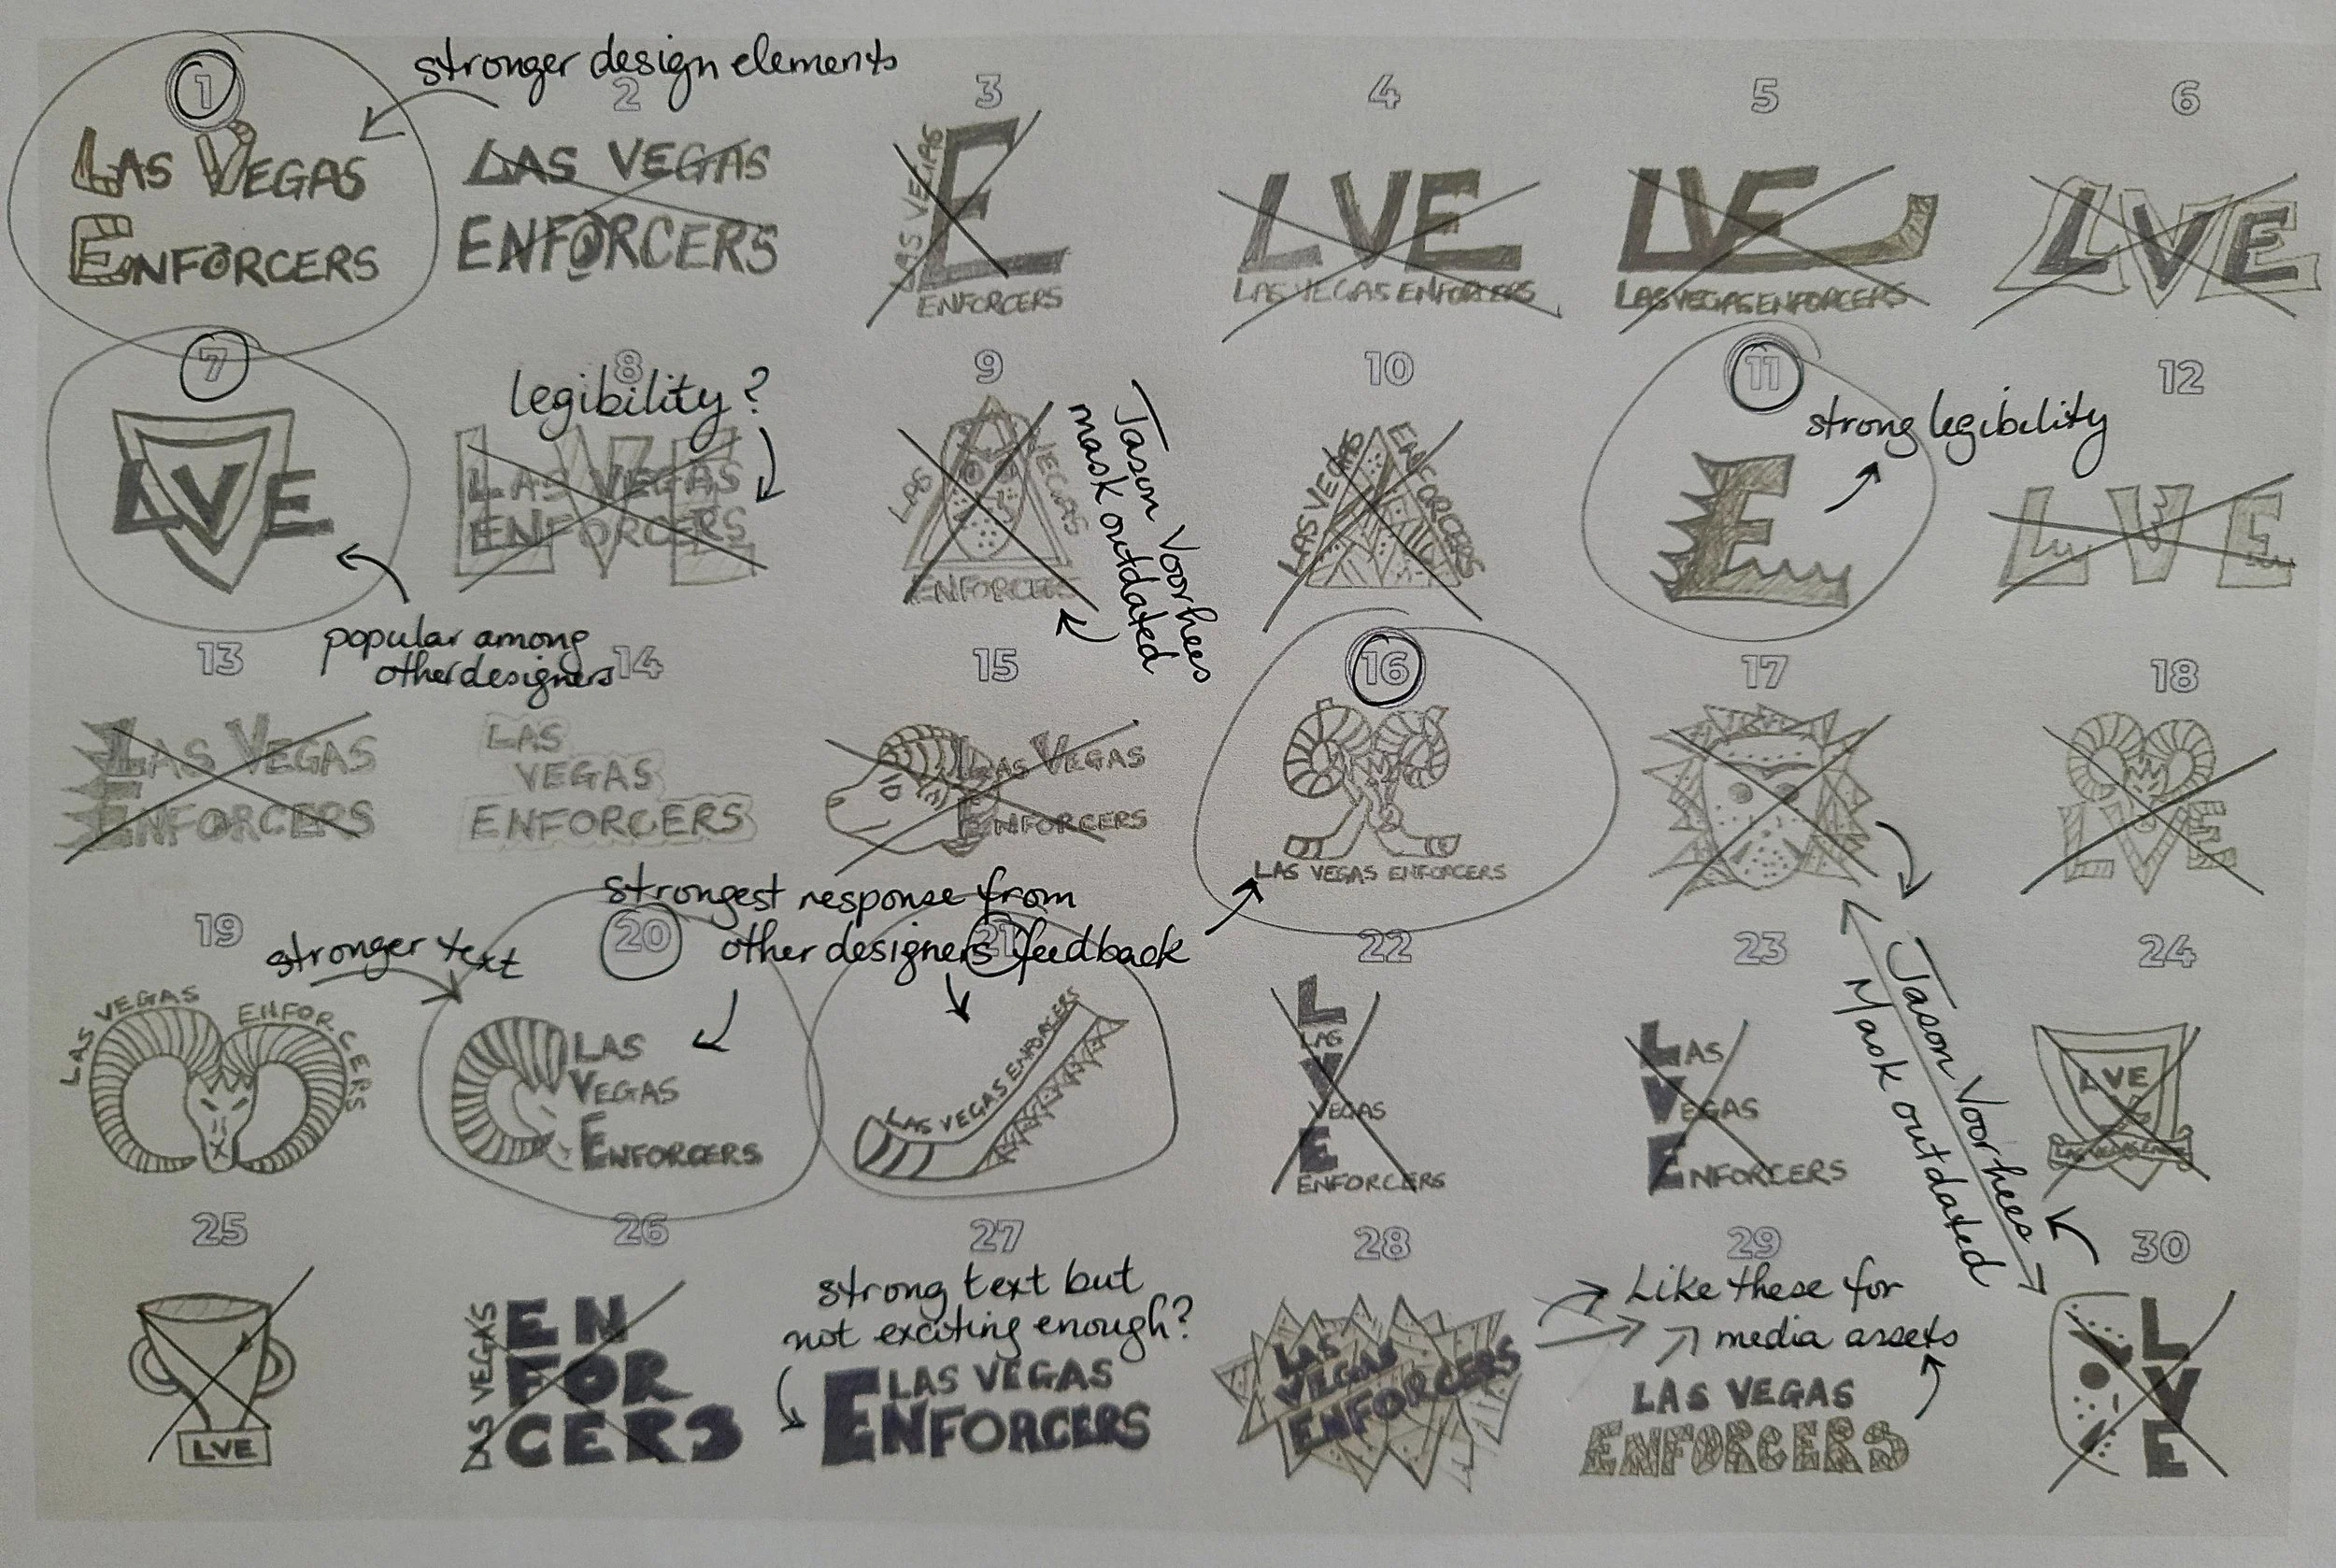 stronger design elements
1
2
3
4
5
6
LAS VEGAS
ENFORCERS
LAS VEGAS
ENFORCERS
LAS VEGAS
E
ENFORCERS
LVE
LAS VEGAS ENFORCERS
LVE
LAS VEGAS ENFORCERS
LVE
7
8
9
10
11
12
legibility?
strong legibility
LVE
LVE
LAS VEGAS
ENFORCERS
LAS
VEGAS
ENFORCERS
Jason Voorhees
mask outdated
LAS VEGAS
ENFORCERS
E
LVE
popular among
other designers
13
14
15
16
17
18
LAS VEGAS
ENFORCERS
LAS
VEGAS
ENFORCERS
LAS VEGAS
ENFORCERS
LAS VEGAS ENFORCERS
LVE
strongest response from
other designers feedback
19
20
21
22
23
24
stronger text
LAS VEGAS
ENFORCERS
LAS
VEGAS
ENFORCERS
LAS VEGAS ENFORCERS
L
LAS
V
VEGAS
E
ENFORCERS
LAS
VEGAS
ENFORCERS
LVE
Jason Voorhees
Mask outdated
25
26
27
28
29
30
LVE
LAS VEGAS
EN
FOR
CERS
strong text but
not exciting enough?
LAS VEGAS
ENFORCERS
LAS
VEGAS
ENFORCERS
Like these for
media assets
LAS VEGAS
ENFORCERS
L
V
E